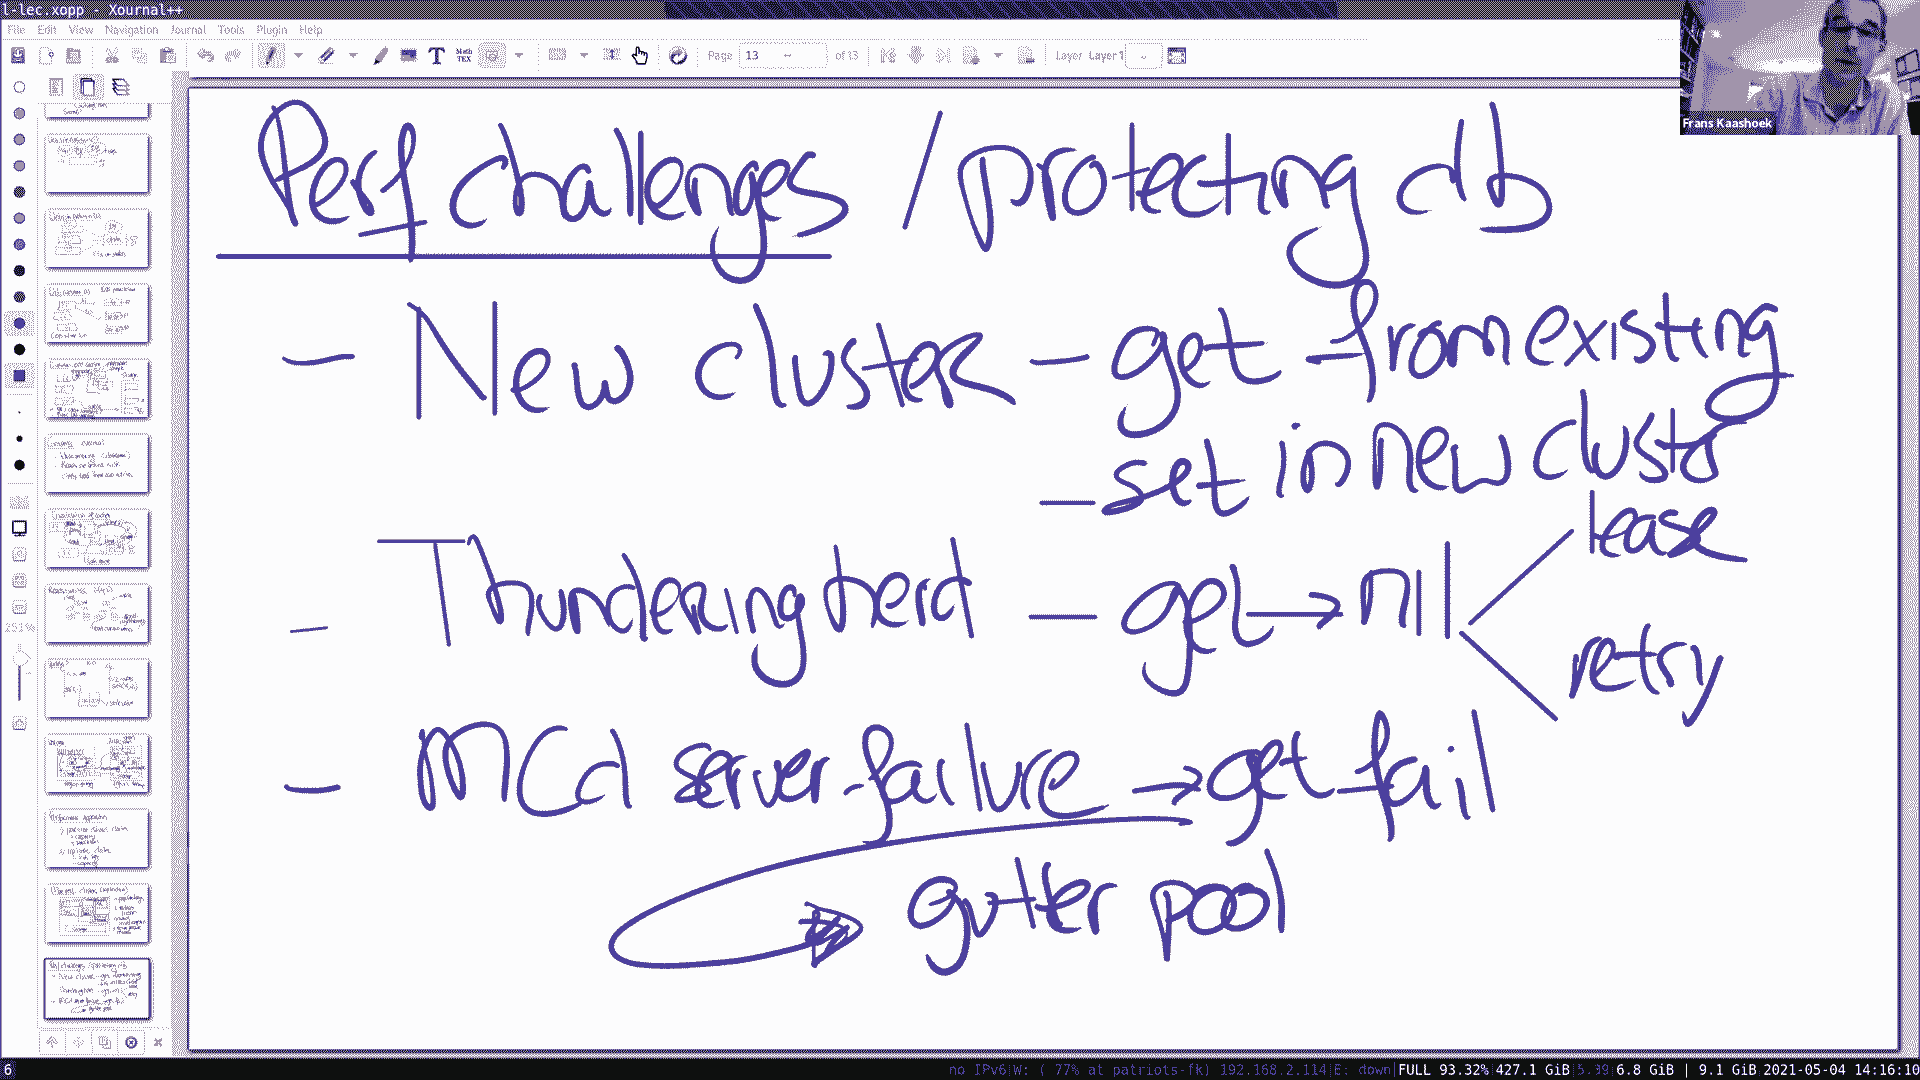 l-lec.xopp - Xournal++
File Edit View Navigation Journal Tools Plugin Help
Page 13 of 13 Layer Layer 1
251%
Frans Kaashoek
Perf challenges / protecting db
- New cluster - get from existing
- set in new cluster
- Thundering herd - get → nil
lease
retry
- MCd server failure → get fail
gutter pool
6
no IPv6 W: ( 77% at patriots-fk) 192.168.2.114 E: down FULL 93.32% 427.1 GiB 5.39 6.8 GiB | 9.1 GiB 2021-05-04 14:16:10